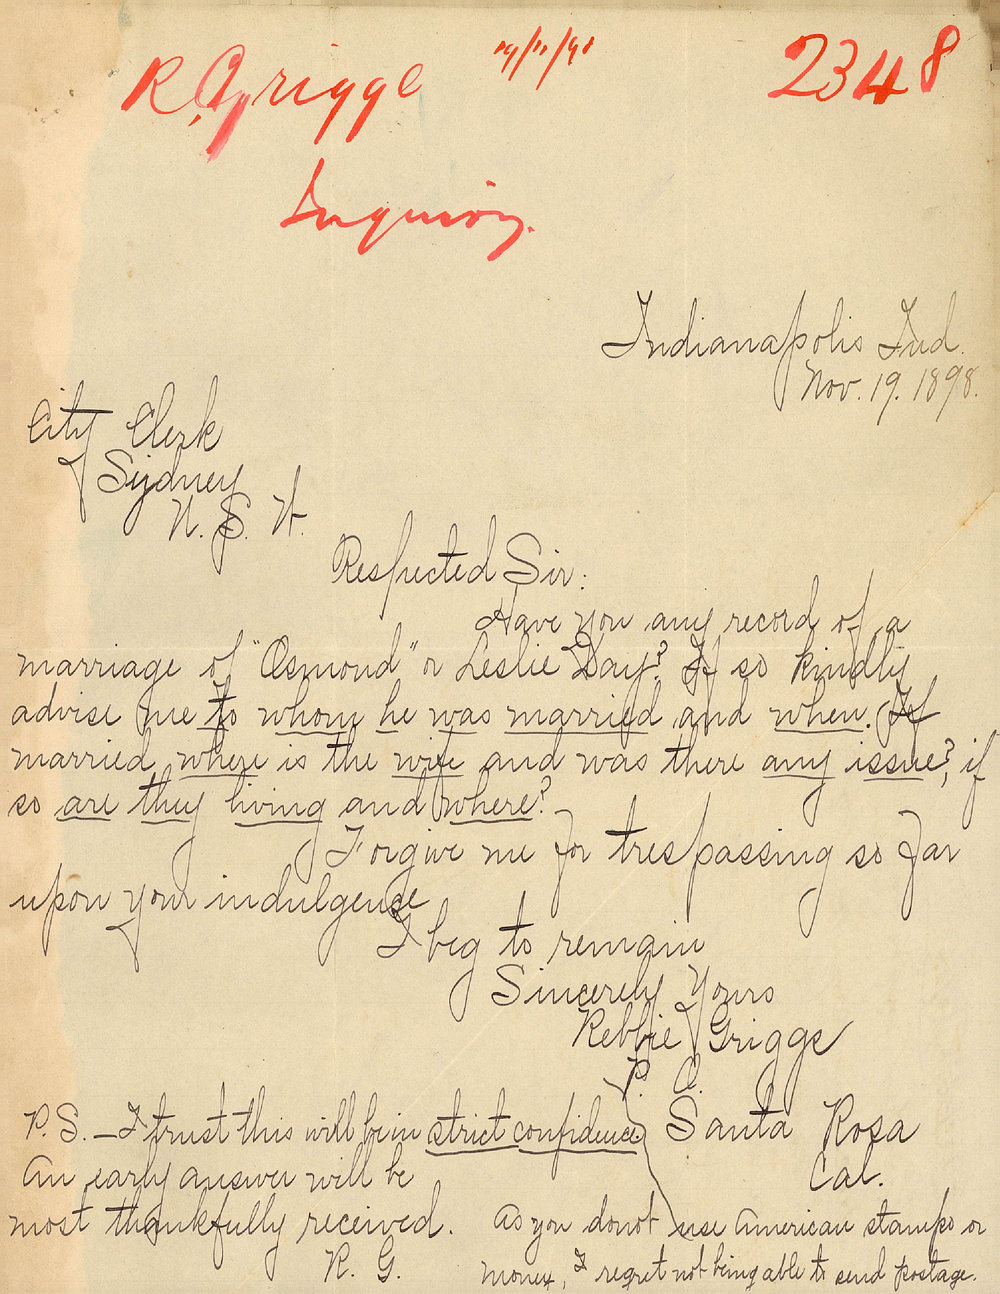 R. Griggs 19/11/98 2348
Inquiry.
Indianapolis Ind.
Nov. 19. 1898.
City Clerk
Sydney
N. S. W.
Respected Sir:
Have you any record of a
marriage of "Osmond" or Leslie Day? If so kindly
advise me to whom he was married and when. If
married, where is the wife and was there any issue?, if
so are they living and where?
Forgive me for trespassing so far
upon your indulgence
I beg to remain
Sincerely Yours
Rebbie Griggs
P. O.
Santa Rosa
Cal.
P. S. – I trust this will be in strict confidence.
An early answer will be
most thankfully received.
R. G.
As you donot use American stamps or
money, I regret not being able to send postage.